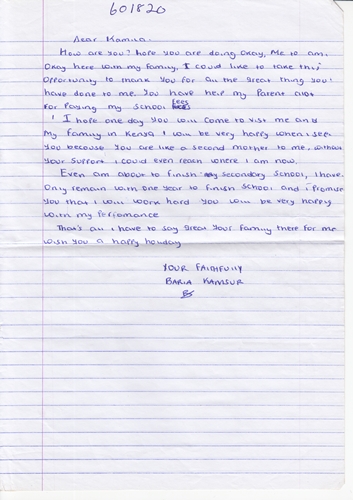 601820
Dear Mamina.
How are you? hope you are doing okay, Me to am
Okay here with my family, I could like to take this
Opportunity to thank you for all the great thing you
have done to me. You have help my Parent a lot
For Paying my School Fees
I hope one day you will come to visit me and
My family in Kenya I will be very happy when i see
You because you are like a second mother to me, without
Your support i could even reach where I am now.
Even am about to finish my secondary school, I have
Only remain with one year to finish school and i Promise
You that I will work hard you will be very happy
with my Performance
That's all i have to say great your family there for me
wish you a happy holiday
YOUR FAITHFULLY
BARIA KAMSUR